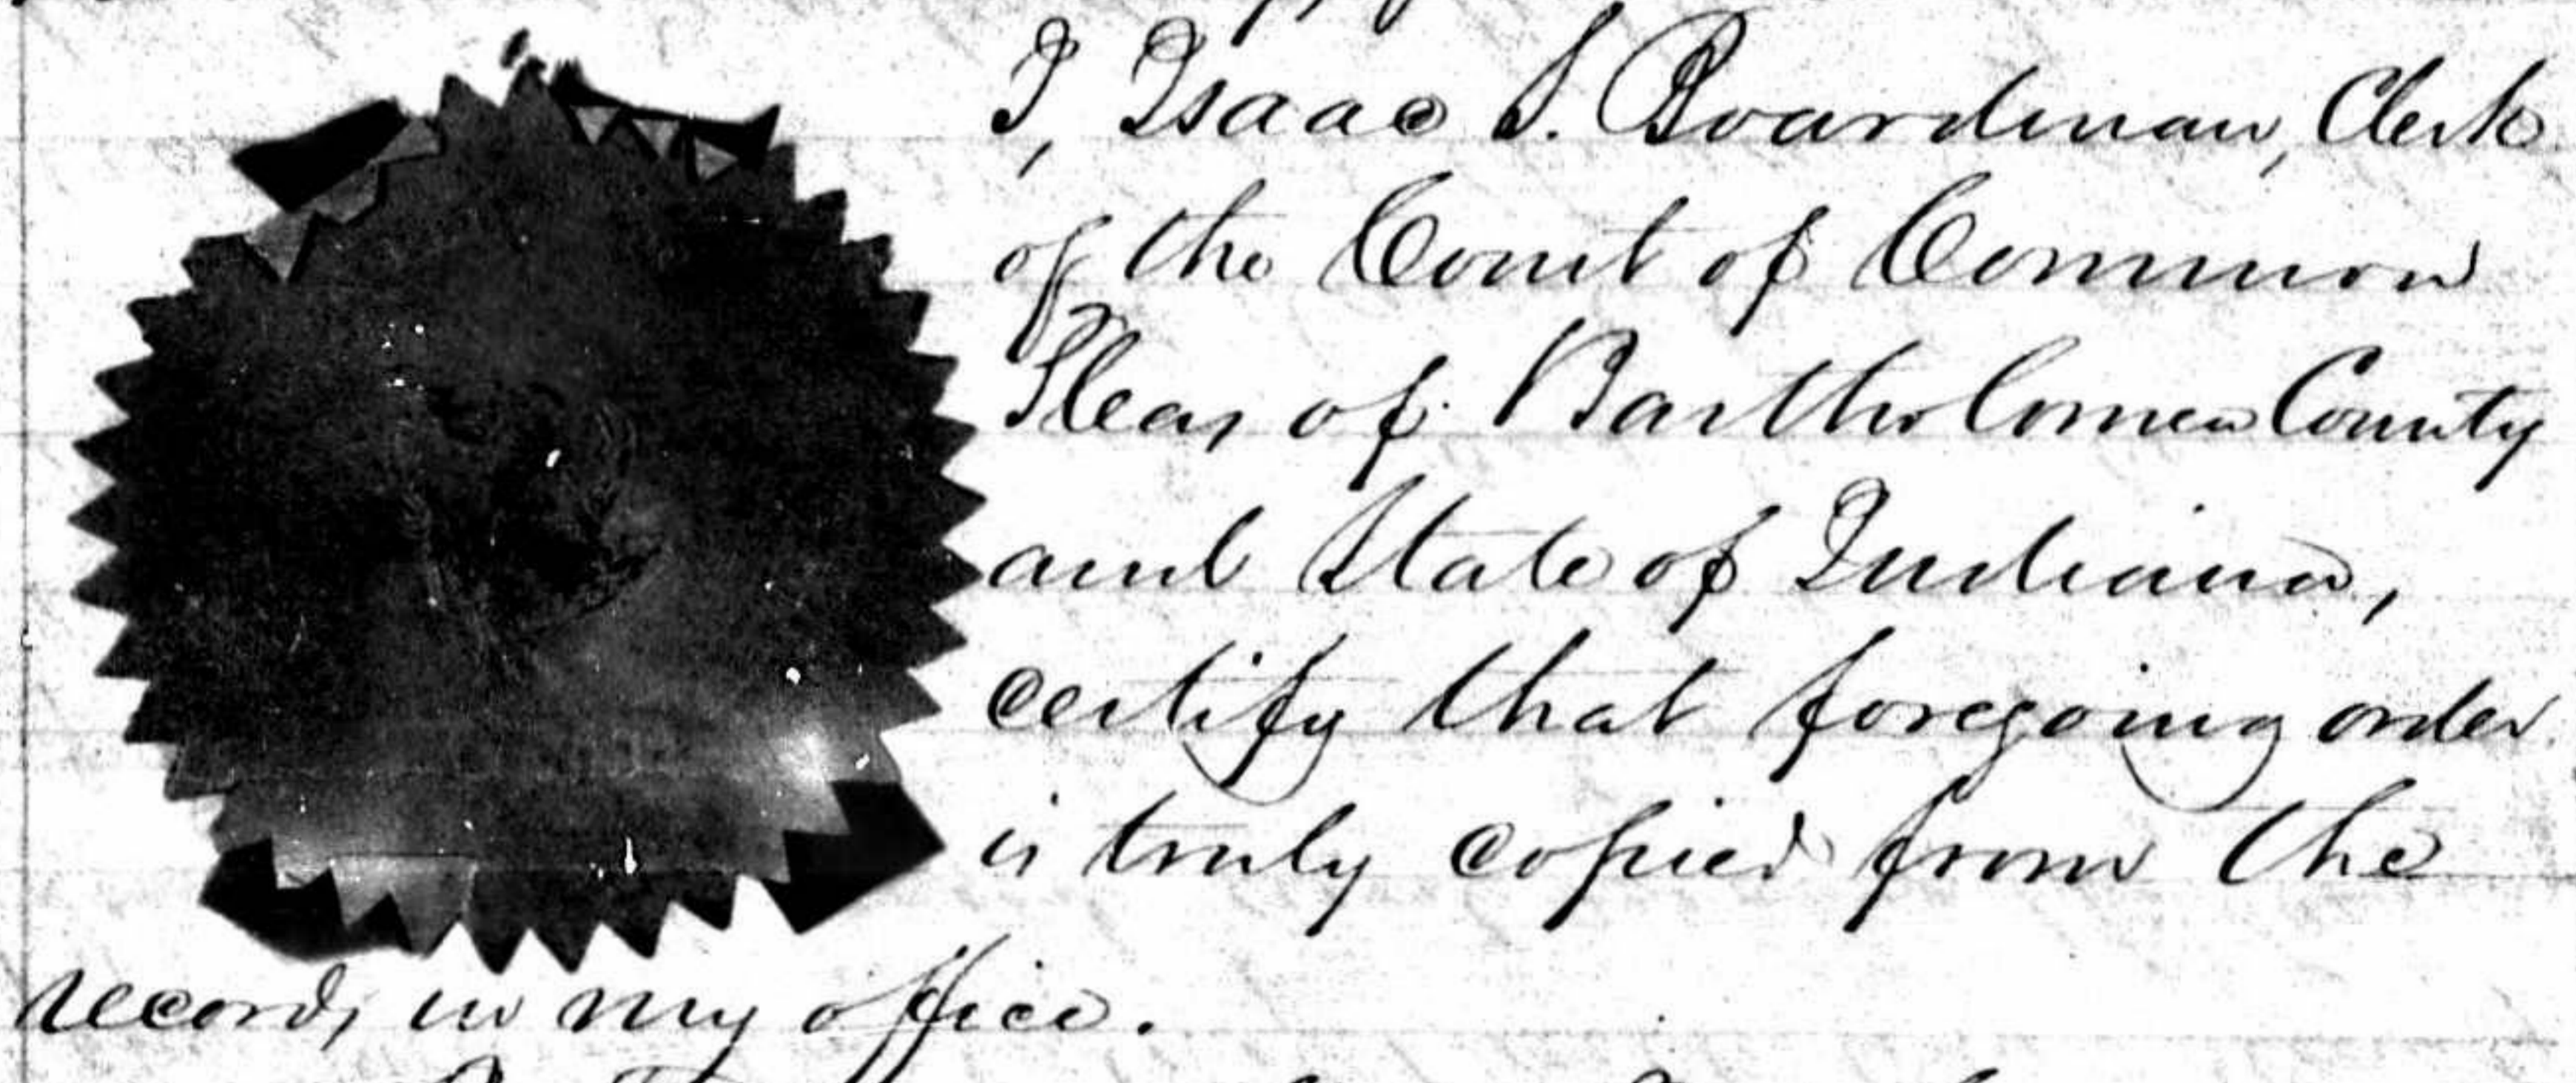 I, Isaac S. Boardman, Clerk
of the Court of Common
Pleas of Bartholomew County
and State of Indiana,
certify that foregoing order
is truly copied from the
records in my office.